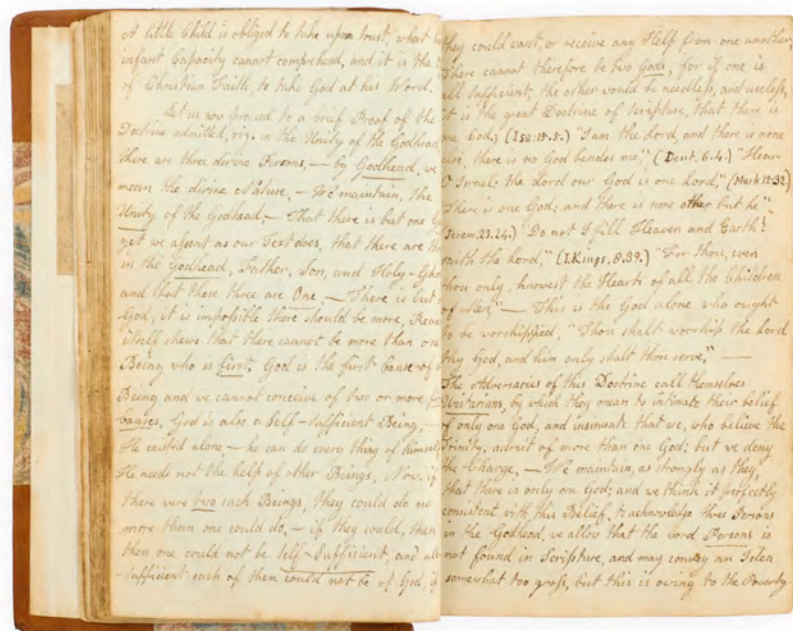 A little Child is obliged to take upon trust, what h
infant Capacity cannot comprehend, and it is the
of Christian Faith, to take God at his Word.
Let us now proceed to a brief Proof of the
Doctrine admitted, viz. in the Unity of the Godhead,
there are three divine Persons, — by Godhead, we
mean the divine Nature, — We maintain, the
Unity of the Godhead, — That there is but one G
yet we assent as our Text does, that there are th
in the Godhead, Father, Son, and Holy-Gho
and that these three are One, — There is but o
God, it is impossible there should be more, Reas
itself shews that there cannot be more than one
Being who is first, God is the first Cause of
Being and we cannot conceive of two or more
Causes, God is also a Self-sufficient Being, —
He existed alone — he can do every thing of himself
He needs not the help of other Beings, Now, if
there were two such Beings, they could do no
more than one could do, — if they could, then
then one could not be Self-Sufficient, and all
-sufficient each of them could not be of God, if
they could want, or receive any Help from one another,
There cannot therefore be two Gods, for if one is
all sufficient, the other would be needless, and useless,
it is the great Doctrine of Scripture, that there is
one God; (Isa: 45.5.) "I am the Lord, and there is none
else, there is no God besides me," (Deut. 6.4.) "Hear
O Israel; the Lord our God is one Lord," (Mark 12.32)
There is one God; and there is none other but he"
(Jerem. 23.24.) "Do not I fill Heaven and Earth?
saith the Lord," (I.Kings. 8.39.) "For thou, even
thou only, knowest the Hearts of all the Children
of Men," — This is the God alone who ought
to be worshipped, "Thou shalt worship the Lord
thy God, and him only shalt thou serve," —
The Adversaries of this Doctrine call themselves
Unitarians, by which they mean to intimate their belief
of only one God, and insinuate that we, who believe the
Trinity, admit of more than one God; but we deny
the Charge, — We maintain, as strongly as they,
that there is only one God; and we think it perfectly
consistent with this Belief, to acknowledge three Persons
in the Godhead, we allow that the word Persons is
not found in Scripture, and may convey an Idea
somewhat too gross, but this is owing to the Poverty